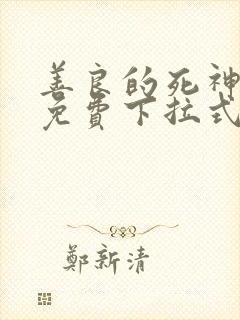 善良的死神
免費下拉式
鄭新清